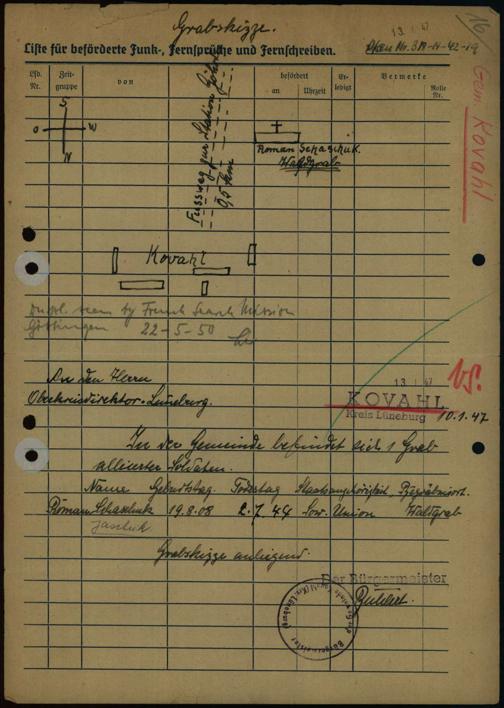 Grabskizze.
13. 1. 47
16
Liste für beförderte Funk-, Fernsprüche und Fernschreiben.
Lfd. Nr.
Zeit- gruppe
von
befördert
an
Uhrzeit
Er- ledigt
Vermerke
Rolle Nr.
Gem. Kovahl
S
O W
N
Fussweg zur Station Göhrde
0,5 km
Roman Schaschuk.
Waldgrab
Kovahl
seen by French Search Mission
Göttingen 22-5-50
An den Herrn
Oberkreisdirektor-Lüneburg.
13. 1. 47
KOVAHL
Kreis Lüneburg 10.1.47
In der Gemeinde befindet sich 1 Grab
alliierter Soldaten.
Name Geburtstag. Todestag Staatsangehörigkeit Begräbnisort.
Roman Schaschuk 19.8.08 2.7.44 Sow. Union Waldgrab
Jaschuk
Grabskizze anliegend.
Der Bürgermeister